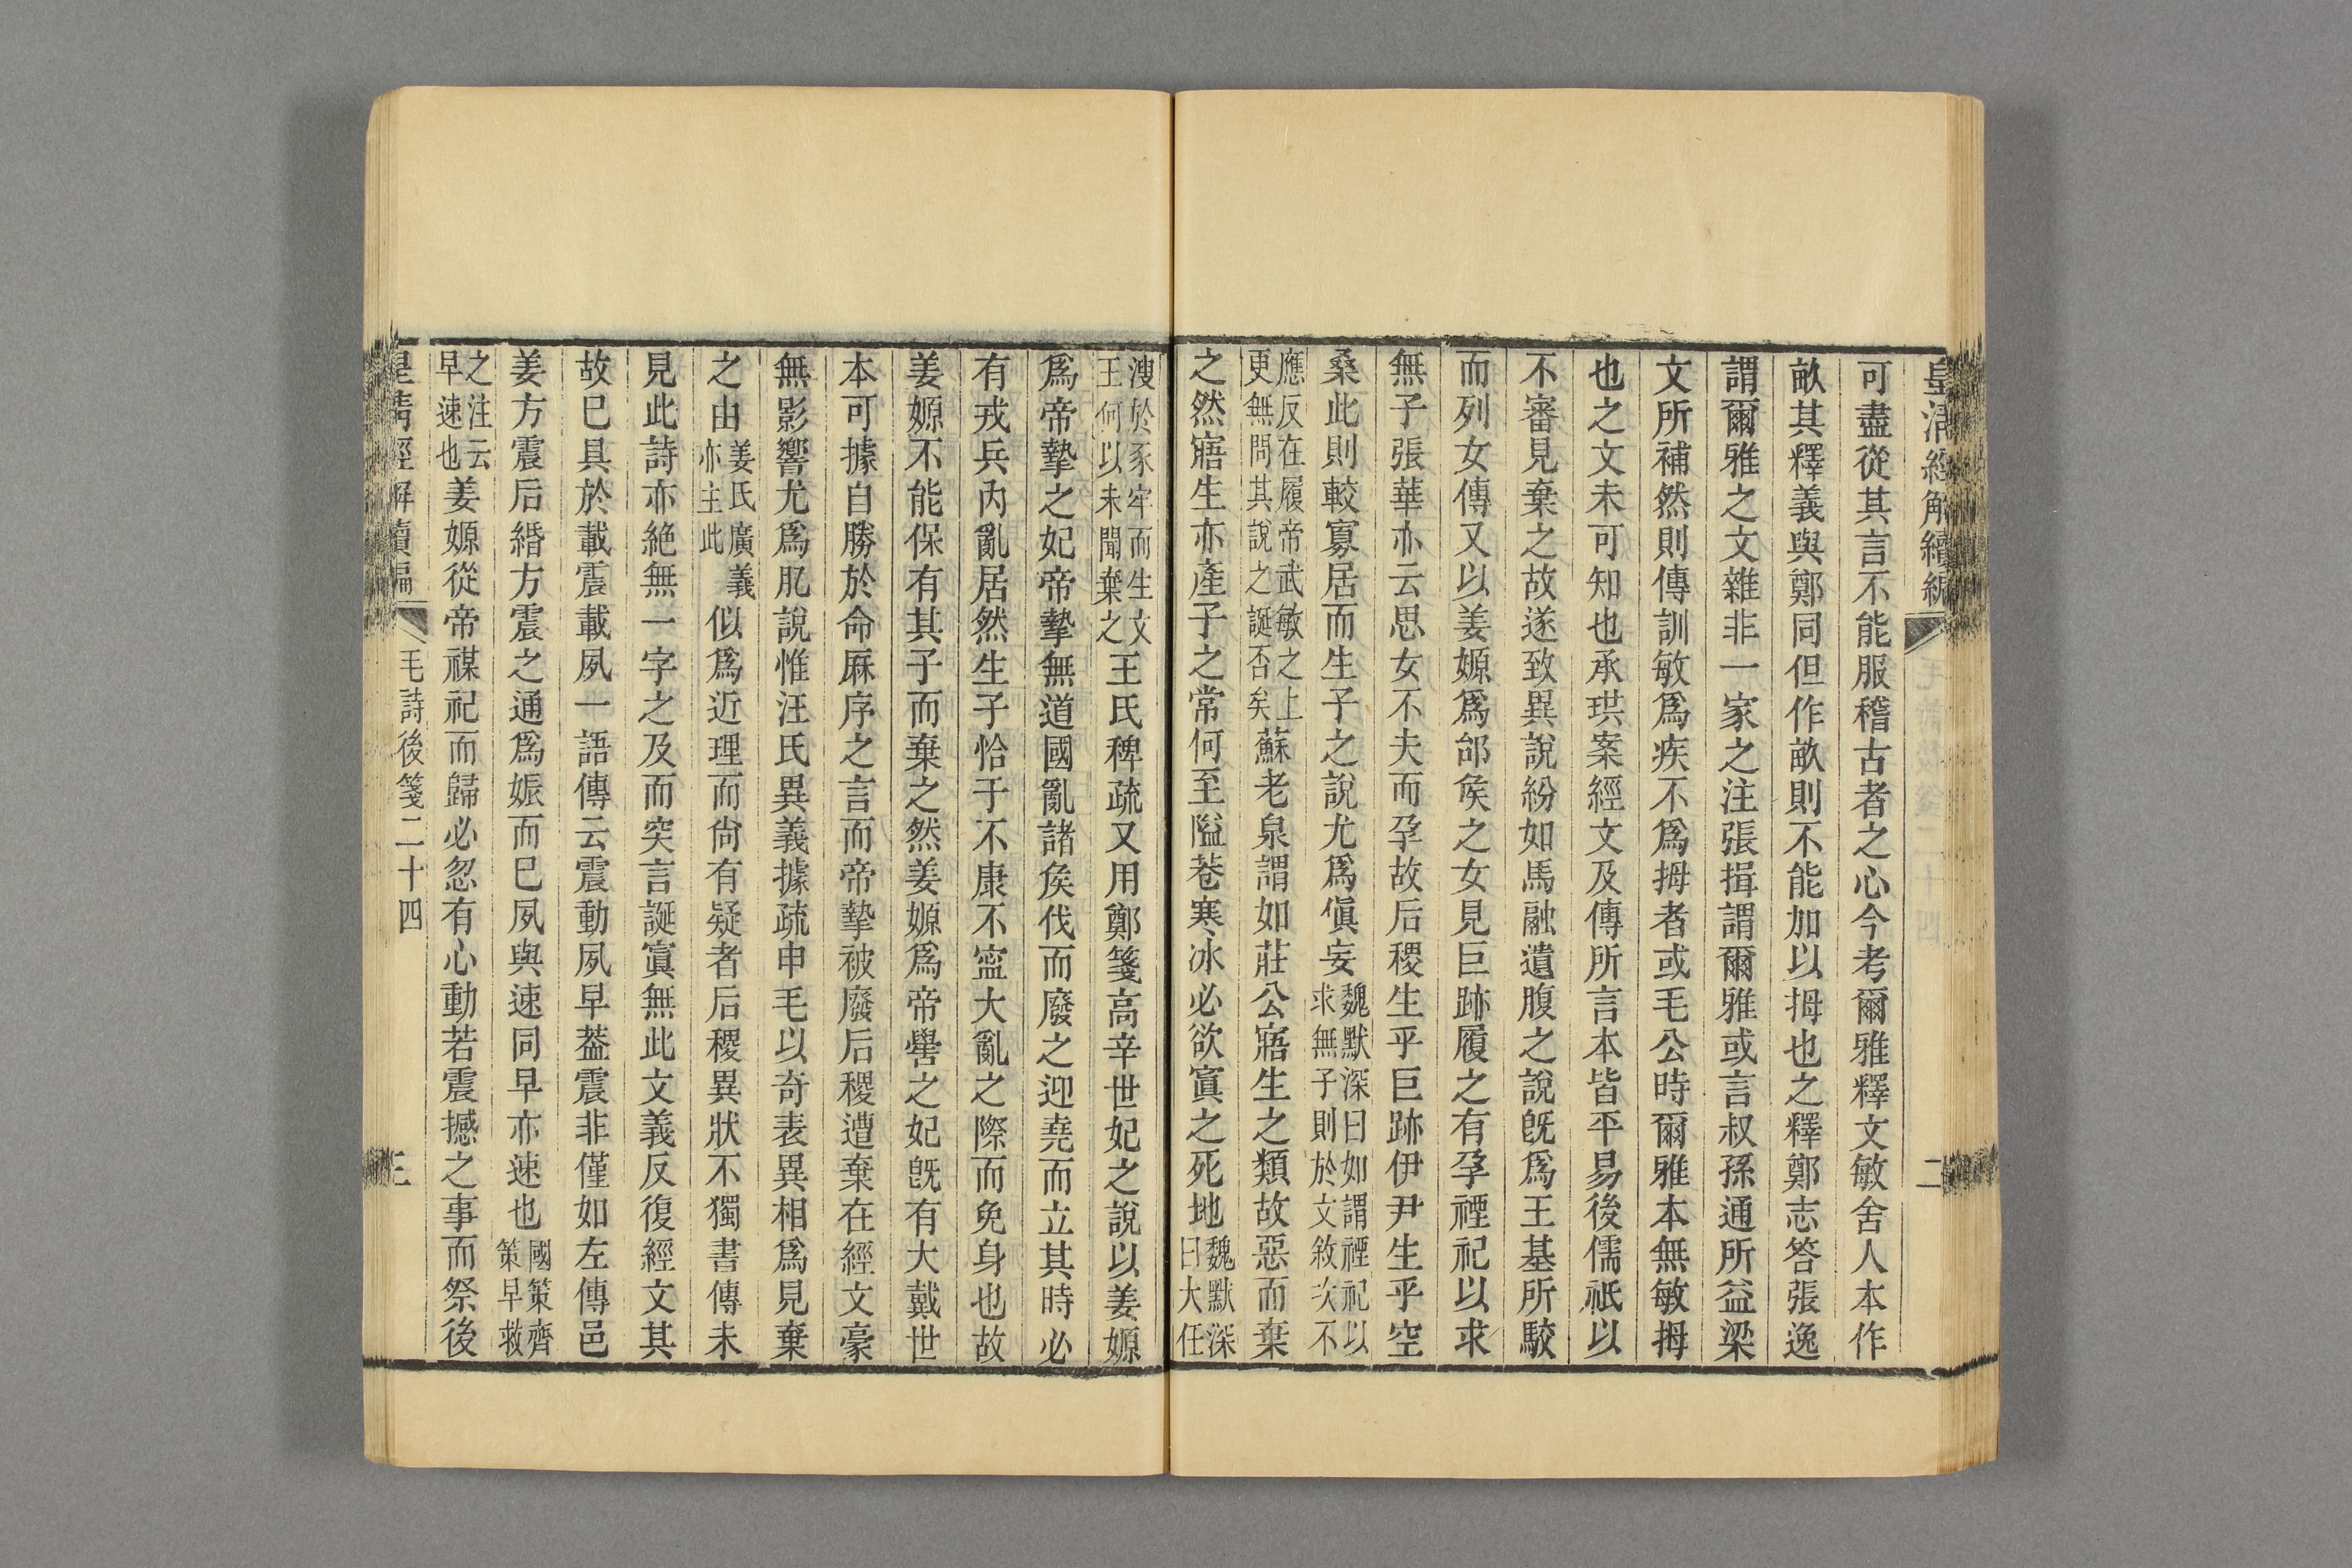 皇清經解續編
二
可盡從其言不能服稽古者之心今考爾雅釋文敏舍人本作
畝其釋義與鄭同但作畝則不能加以拇也之釋鄭志答張逸
謂爾雅之文雜非一家之注張揖謂爾雅或言叔孫通所益梁
文所補然則傳訓敏爲疾不爲拇者或毛公時爾雅本無敏拇
也之文未可知也承珙案經文及傳所言本皆平易後儒祇以
不審見棄之故遂致異說紛如馬融遺腹之說旣爲王基所駮
而列女傳又以姜嫄爲邰矦之女見巨跡履之有孕禋祀以求
無子張華亦云思女不夫而孕故后稷生乎巨跡伊尹生乎空
桑此則較寡居而生子之說尤爲傎妄魏默深曰如謂禋祀以求無子則於文敘次不
應反在履帝武敏之上更無問其說之誕否矣蘇老泉謂如莊公寤生之類故惡而棄
之然寤生亦產子之常何至隘巷寒冰必欲寘之死地魏默深曰大任
溲於豕牢而生文王何以未聞棄之王氏稗疏又用鄭箋高辛世妃之說以姜嫄
爲帝摯之妃帝摯無道國亂諸矦伐而廢之迎堯而立其時必
有戎兵內亂居然生子恰于不康不寍大亂之際而免身也故
姜嫄不能保有其子而棄之然姜嫄爲帝嚳之妃旣有大戴世
本可據自勝於命厤序之言而帝摯被廢后稷遭棄在經文豪
無影響尤爲肊說惟汪氏異義據疏申毛以奇表異相爲見棄
之由姜氏廣義亦主此似爲近理而尙有疑者后稷異狀不獨書傳未
見此詩亦絕無一字之及而突言誕寘無此文義反復經文其
故已具於載震載夙一語傳云震動夙早葢震非僅如左傳邑
姜方震后緡方震之通爲娠而已夙與速同早亦速也國策齊策早救
之注云早速也姜嫄從帝禖祀而歸必忽有心動若震撼之事而祭後
皇清經解續編
毛詩後箋二十四
三